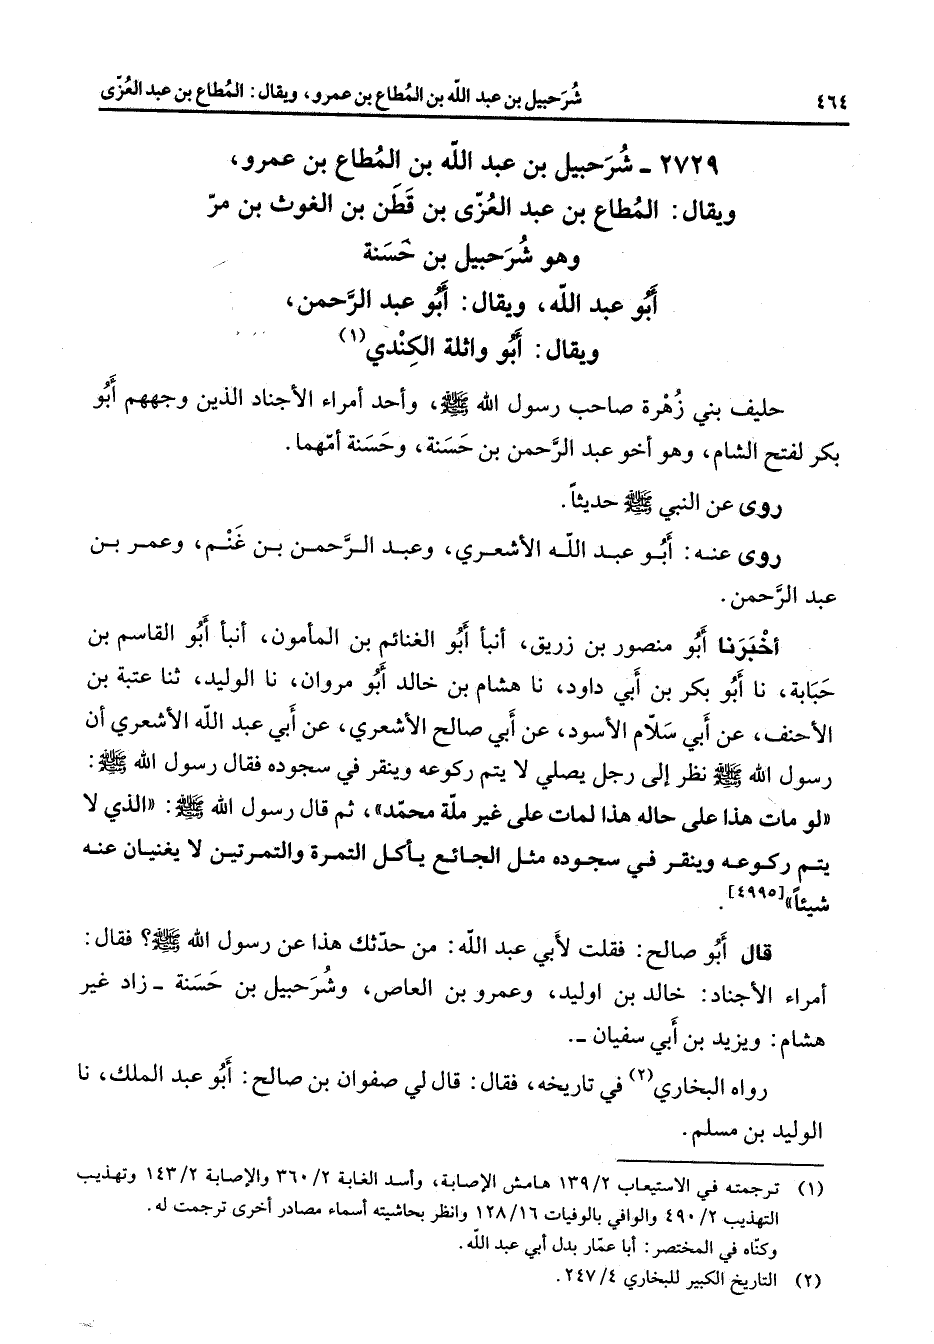 ٤٦٤
شُرَحبيل بن عبد اللّه بن المُطاع بن عمرو، ويقال: المُطاع بن عبد العُزّى
٢٧٢٩ ـ شُرَحبيل بن عبد اللّه بن المُطاع بن عمرو،
ويقال: المُطاع بن عبد العُزّى بن قَطَن بن الغوث بن مرّ
وهو شُرَحبيل بن حَسَنة
أَبُو عبد اللّه، ويقال: أَبُو عبد الرَّحمن،
ويقال: أَبُو واثلة الكِنْدي(١)
حليف بني زُهْرة صاحب رسول الله ﷺ، وأحد أمراء الأجناد الذين وجههم أَبُو
بكر لفتح الشام، وهو أخو عبد الرَّحمن بن حَسَنة، وحَسَنة أمّهما.
روى عن النبي ﷺ حديثاً.
روى عنه: أَبُو عبد اللّه الأشعري، وعبد الرَّحمن بن غَنْم، وعمر بن
عبد الرَّحمن.
أخْبَرَنا أَبُو منصور بن زريق، أنبأ أَبُو الغنائم بن المأمون، أنبأ أَبُو القاسم بن
حَبَابة، نا أَبُو بكر بن أبي داود، نا هشام بن خالد أَبُو مروان، نا الوليد، ثنا عتبة بن
الأحنف، عن أَبي سَلّام الأسود، عن أَبي صالح الأشعري، عن أَبي عبد اللّه الأشعري أن
رسول الله ﷺ نظر إلى رجل يصلي لا يتم ركوعه وينقر في سجوده فقال رسول الله ﷺ:
«لو مات هذا على حاله هذا لمات على غير ملّة محمّد»، ثم قال رسول الله ﷺ: «الذي لا
يتم ركوعه وينقر في سجوده مثل الجائع يأكل التمرة والتمرتين لا يغنيان عنه
شيئاً»[٤٩٩٥].
قال أَبُو صالح: فقلت لأَبي عبد اللّه: من حدّثك هذا عن رسول الله ﷺ؟ فقال:
أمراء الأجناد: خالد بن اوليد، وعمرو بن العاص، وشُرَحبيل بن حَسَنة ـ زاد غير
هشام: ويزيد بن أَبي سفيان ـ.
رواه البخاري(٢) في تاريخه، فقال: قال لي صفوان بن صالح: أَبُو عبد الملك، نا
الوليد بن مسلم.
(١) ترجمته في الاستيعاب ١٣٩/٢ هامش الإصابة، وأسد الغابة ٣٦٠/٢ والإصابة ١٤٣/٢ وتهذيب
التهذيب ٤٩٠/٢ والوافي بالوفيات ١٢٨/١٦ وانظر بحاشيته أسماء مصادر أخرى ترجمت له.
وكنّاه في المختصر: أبا عمّار بدل أبي عبد اللّه.
(٢) التاريخ الكبير للبخاري ٢٤٧/٤.